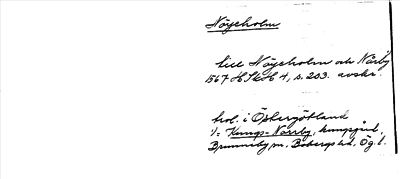 Nöyeholm
till Nöyeholm och Närby
1567 H Sk H 4, s. 203. avskr.
trol. i Östergötland
1/= Kungs-Norrby, kungsgård,
Brunneby sn. Bobergs hd. Ög. l.